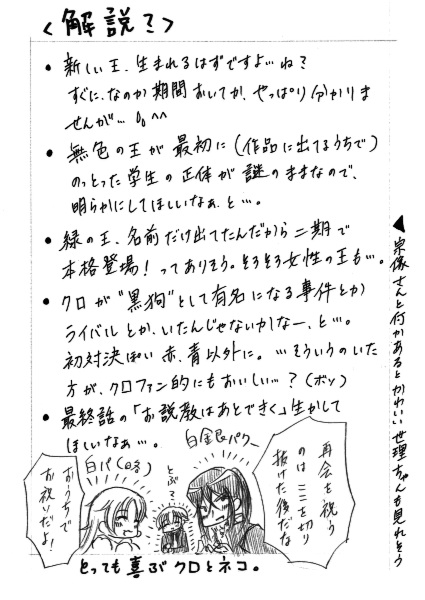 <解説?>
• 新しい王、生まれるはずですよ…ね?
すぐに、なのか期間おいてか、やっぱり分かりま
せんが… ^^
• 無色の王が最初に(作品に出てるうちで)
のっとった学生の正体が謎のままなので、
明らかにしてほしいなぁ、と…。
• 緑の王、名前だけ出てたんだから二期で
本格登場!ってありそう。そろそろ女性の王も…。
• クロが"黒狗"として有名になる事件とか
ライバルとか、いたんじゃないかなー、と…。
初対決ぽい赤、青以外に。…そういうのいた
方が、クロファン的にもおいしい…?(ボソッ)
• 最終話の「お説教はあとできく」生かして
ほしいなぁ…。
◀宗像さんと何かあるとかわいい世理ちゃんも見れそう
再会を祝う
のはここを切り
抜けた後だな
白銀パワー
とぶ?
白パ(略)
おうちで
お祝いだよ!
とっても喜ぶクロとネコ。